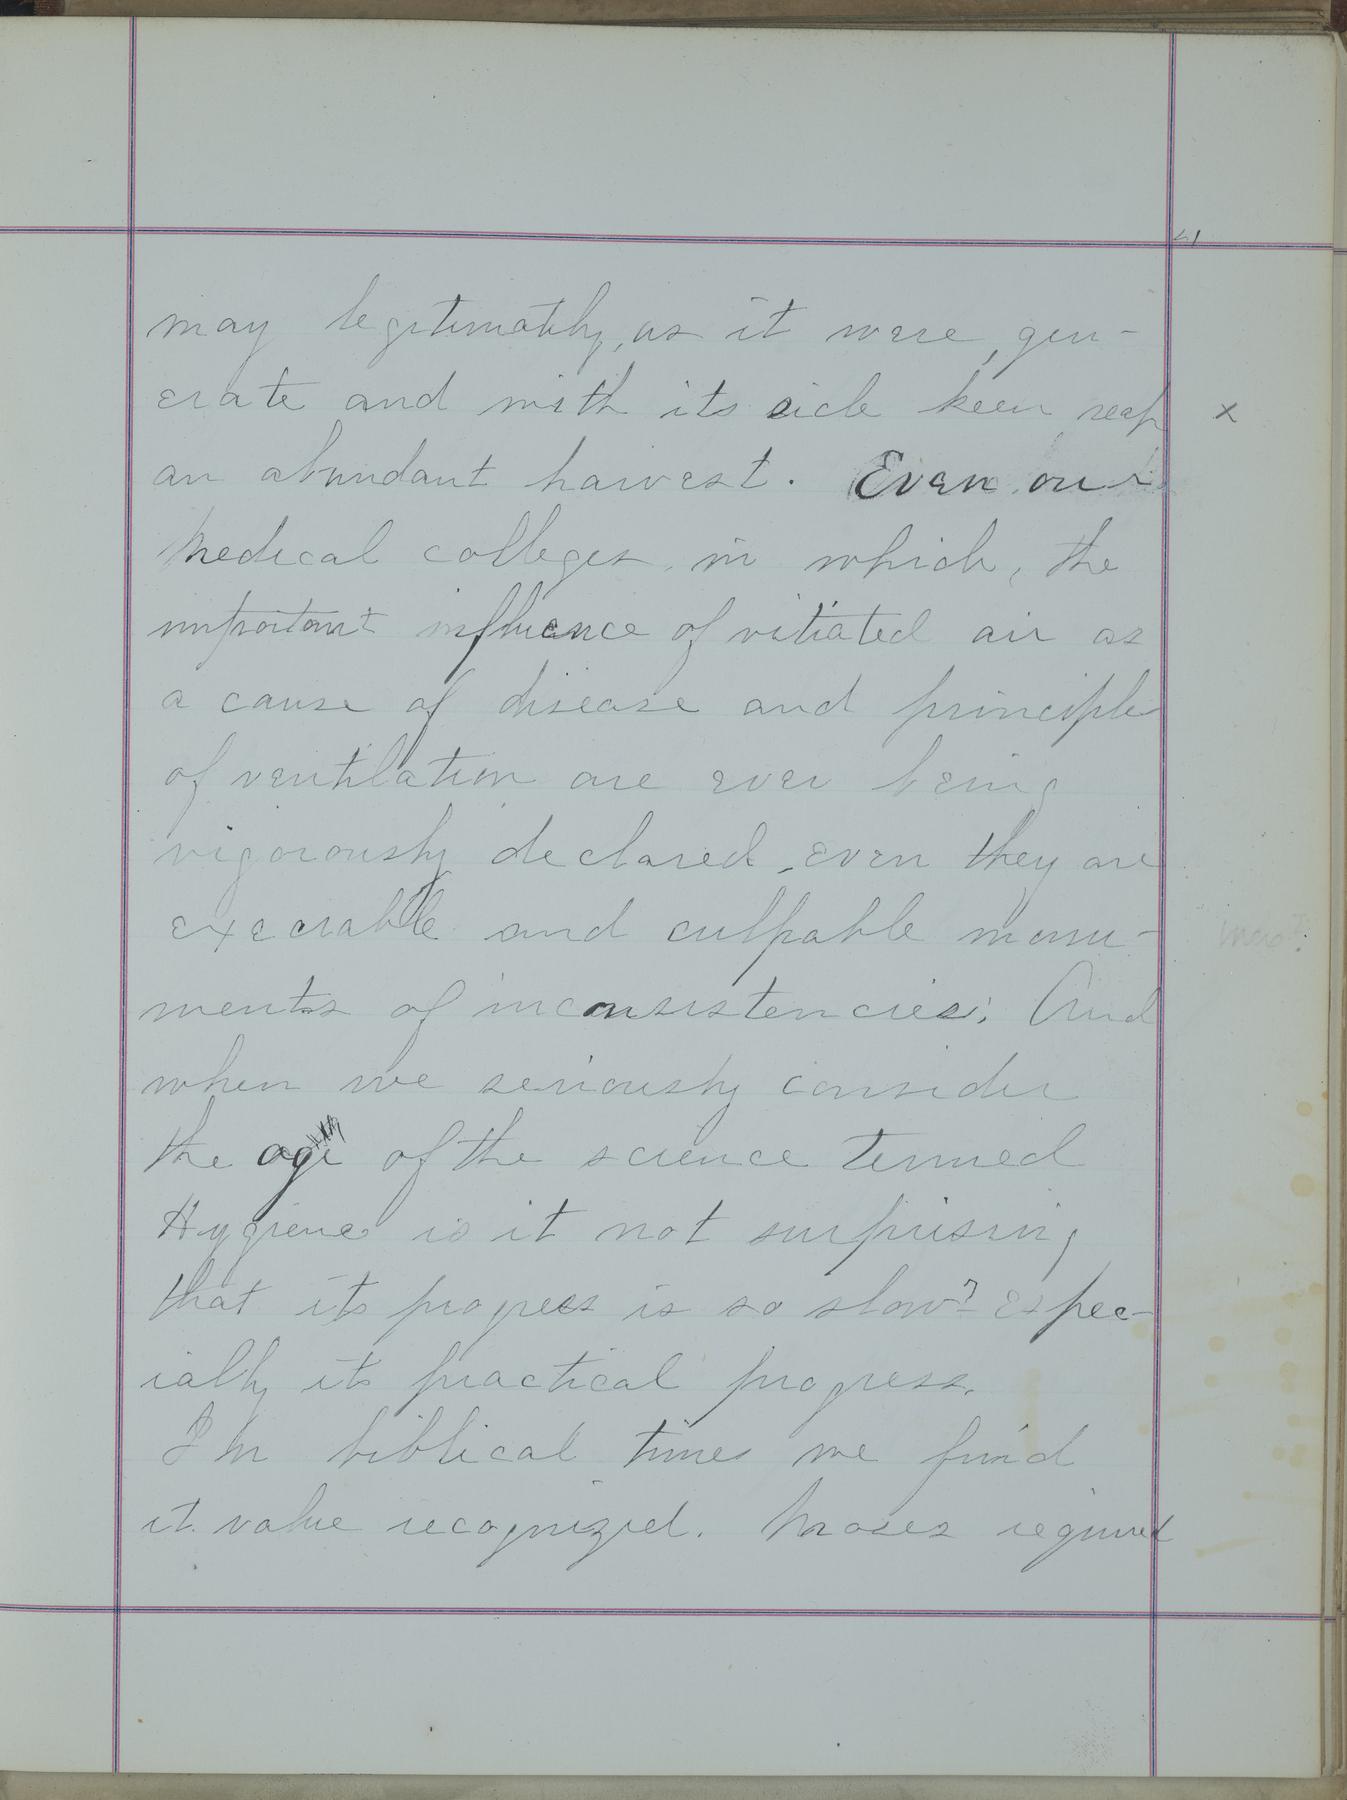 may legitimately, as it were, gen-
erate and with its sicle keen reap x
an abundant harvest. Even our
Medical colleges, in which, the
important influence of vitiated air as
a cause of disease and principle
of ventilation are ever being
vigorously declared, even they are
execrable and culpable monu-
ments of inconsistencies; And
when we seriously consider
the age of the science termed
Hygiene is it not surprising
that its progress is so slow? espec-
ially its practical progress.
In biblical times we find
it value recognized. Moses required